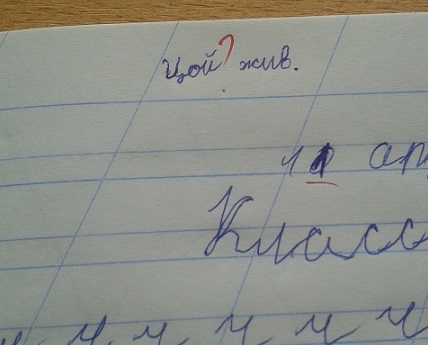 Цой? жив.
11 ап
Класс
ч ч ч ч ч ч